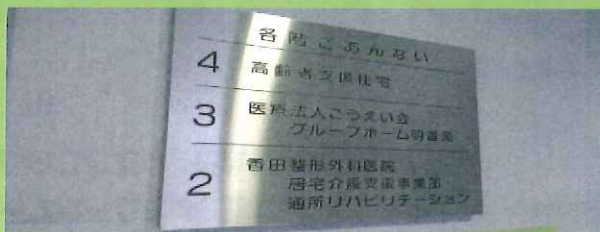 各階ごあんない
4 高齢者支援住宅
3 医療法人こうえい会
グループホーム明香苑
2 香田整形外科医院
居宅介護支援事業部
通所リハビリテーション